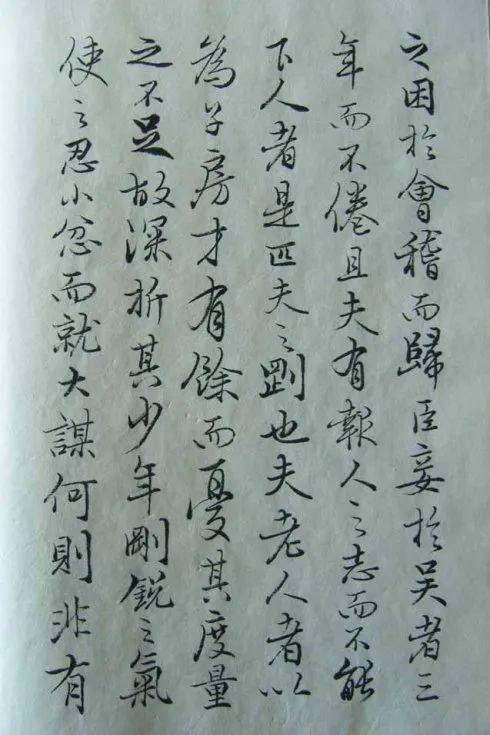 之困於會稽而歸臣妾於吴者三
年而不倦且夫有報人之志而不能
下人者是匹夫之剛也夫老人者以
為子房才有餘而憂其度量
之不足故深折其少年剛銳之氣
使之忍小忿而就大謀何則非有